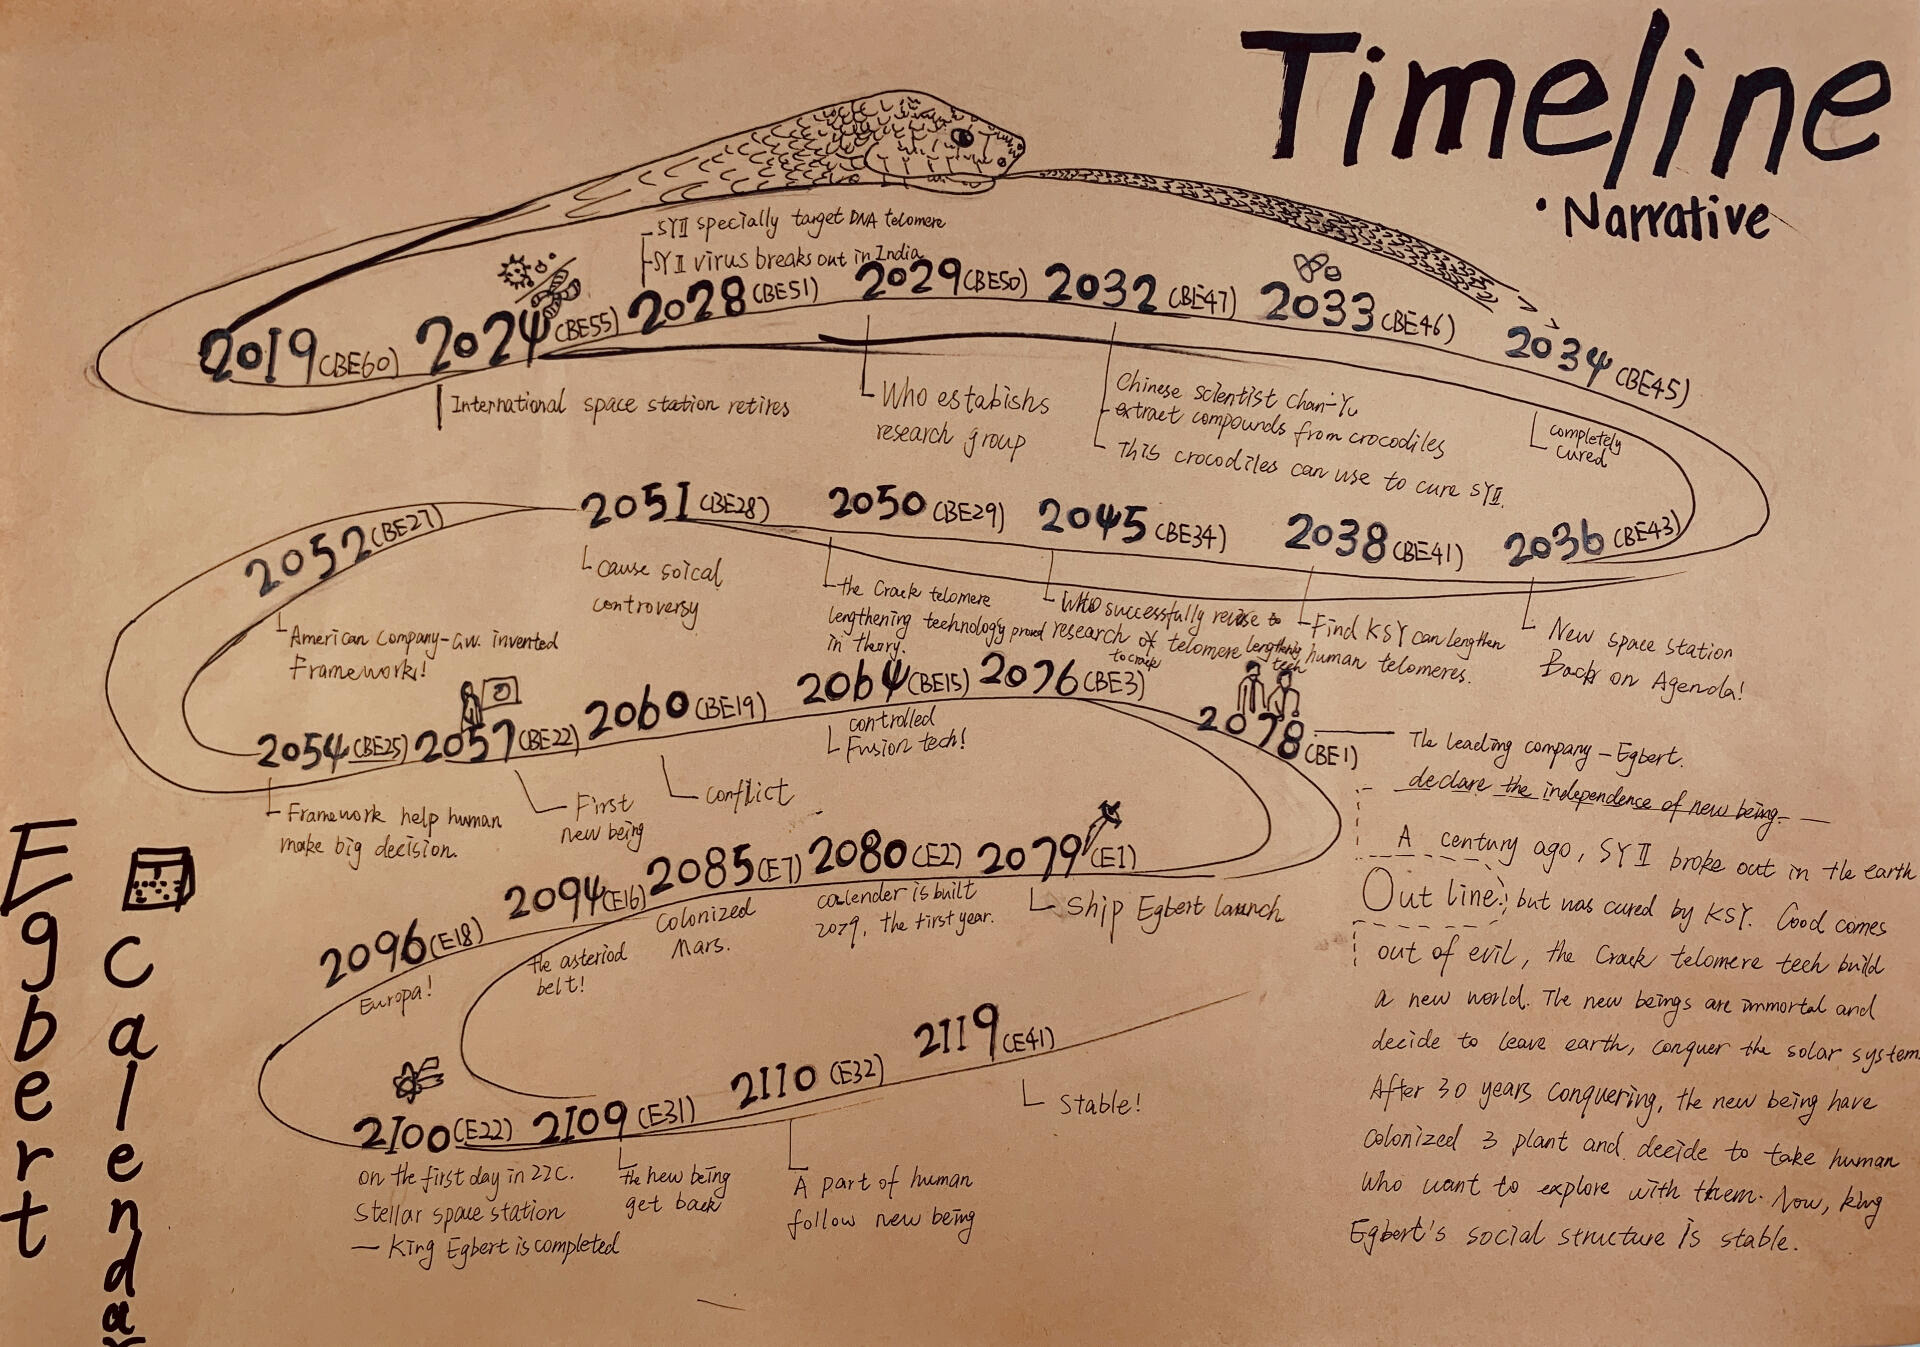 Timeline
· Narrative
SYII specially target DNA telomere
SYII virus breaks out in India
2019 (BE60)
2024 (BE55)
2028 (BE51)
2029 (BE50)
2032 (BE47)
2033 (BE46)
2034 (BE45)
International space station retires
Who estabishs
research group
Chinese scientist Chan-Yu
extract compounds from crocodiles
This crocodiles can use to cure SYII.
completely
cured
2052 (BE27)
2051 (BE28)
2050 (BE29)
2045 (BE34)
2038 (BE41)
2036 (BE43)
American Company-GW. invented
Framework!
cause soical
controversy
the Crack telomere
lengthening technology proved
in theory.
Who successfully to
research of telomere lengthening
to crack tech
Find KSY can lengthen
human telomeres.
New space station
Back on Agenda!
2054 (BE25)
2057 (BE22)
2060 (BE19)
2064 (BE15)
2076 (BE3)
2078 (BE1)
Framework help human
make big decision.
First
new being
conflict
controlled
Fusion tech!
The leading company - Egbert.
declare the independence of new being.
2096 (E18)
2094 (E16)
2085 (E7)
2080 (E2)
2079 (E1)
Europa!
the asteriod
belt!
Colonized
Mars.
calender is built
2079, the first year.
Ship Egbert launch
2100 (E22)
2109 (E31)
2110 (E32)
2119 (E41)
on the first day in 22C.
Stellar space station
— King Egbert is completed
the new being
get back
A part of human
follow new being
Stable!
Out line:
A century ago, SYII broke out in the earth
but was cured by KSY. Good comes
out of evil, the Crack telomere tech build
a new world. The new beings are immortal and
decide to leave earth, conquer the solar system.
After 30 years conquering, the new being have
colonized 3 plant and decide to take human
who want to explore with them. Now, king
Egbert's social structure is stable.
Egbert
Calendar